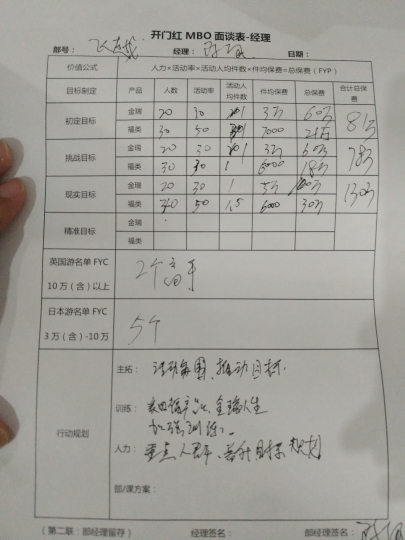 开门红 MBO 面谈表-经理
部号： 经理： 日期：
价值公式 人力×活动率×活动人均件数×件均保费=总保费（FYP）
目标制定 产品 人数 活动率 活动人均件数 件均保费 总保费 合计总保费
初定目标 金瑞 20 30 3万 60万 81万
福类 30 50 7000 21万
挑战目标 金瑞 20 30 3万 60万 78万
福类 30 30 1 6000 18万
现实目标 金瑞 20 30 1 5万 100万 130万
福类 40 50 1.5 6000 30万
精准目标 金瑞
福类
英国游名单 FYC 10 万（含）以上 2个
日本游名单 FYC 3 万（含）-10万 5个
行动规划
主拓： 活动 推动目标
训练： 产品、金瑞人生
加强训练。
人力： 重点人群、晋升目标规划
部/课方案：
（第二联：部经理留存） 经理签名： 部经理签名：